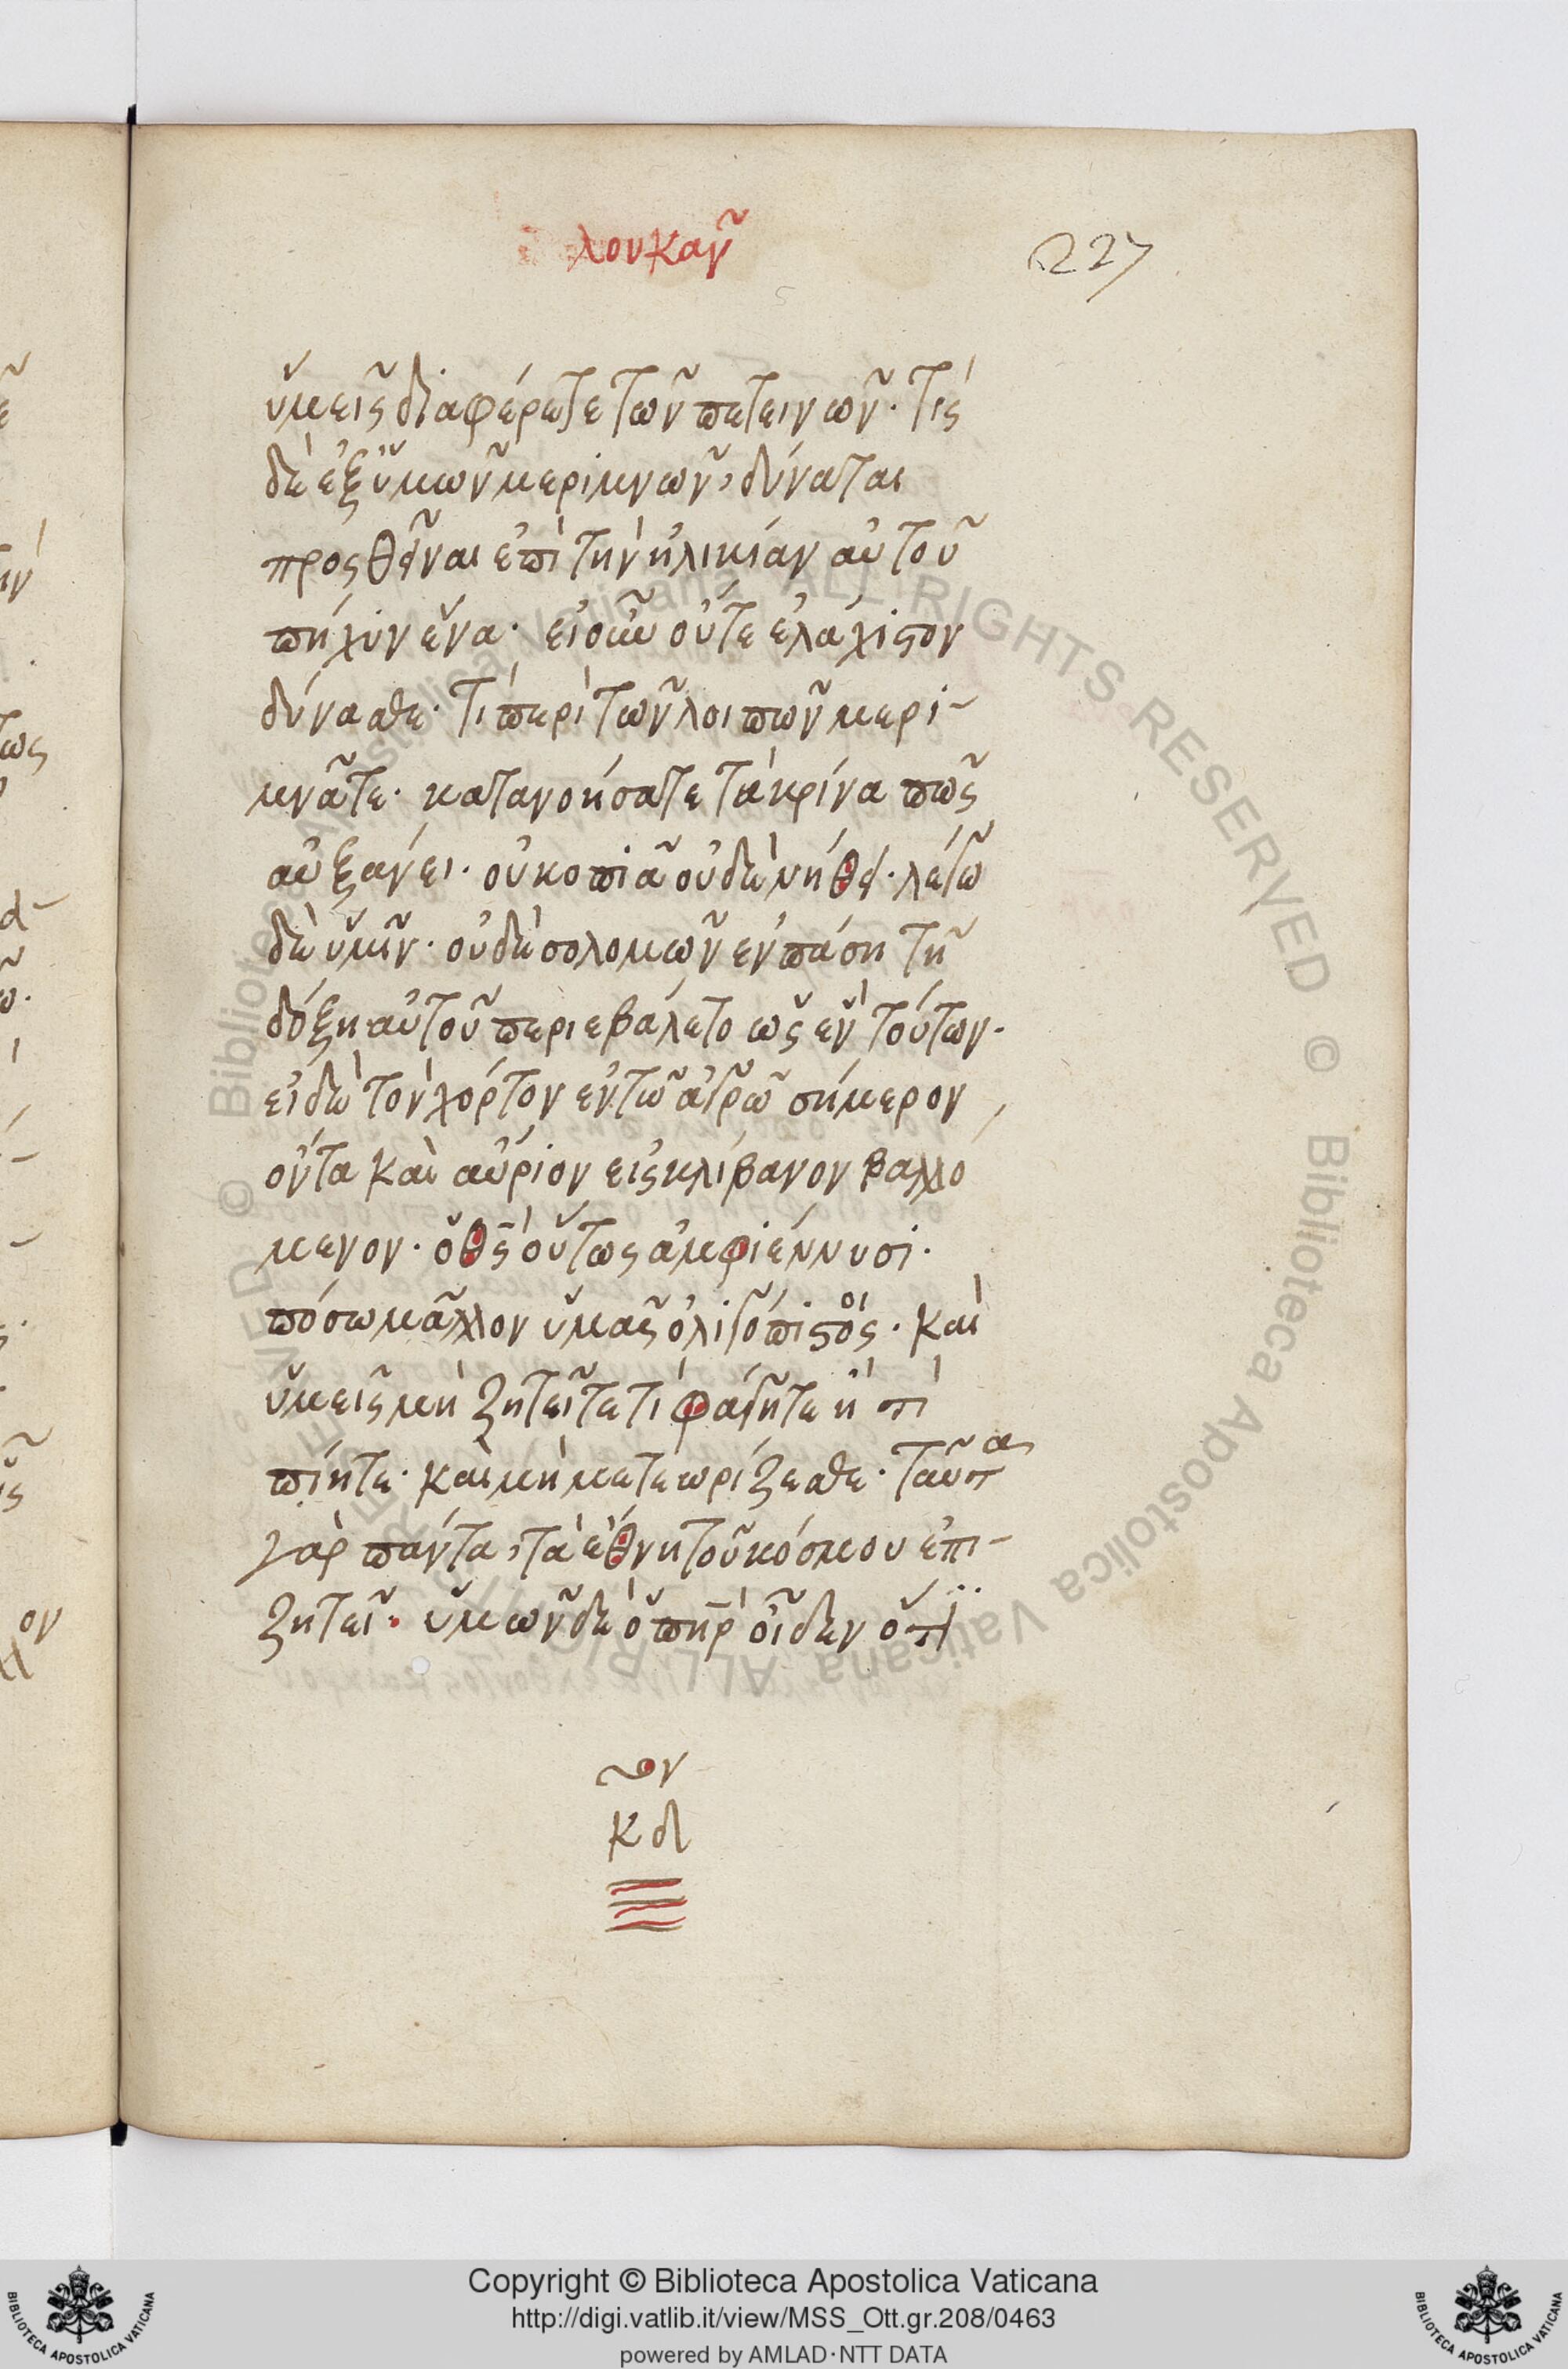 λουκαν
227
ὑμεῖς διαφέρετε τῶν πετεινῶν· τίς
δὲ ἐξ ὑμῶν μεριμνῶν, δύναται
προσθεῖναι ἐπὶ τὴν ἡλικίαν αὐτοῦ
πήχυν ἕνα· εἰ οὖν οὔτε ἐλάχιστον
δύνασθε· τί περὶ τῶν λοιπῶν μερι-
μνᾶτε· κατανοήσατε τὰ κρίνα πῶς
αὐξάνει· οὐ κοπιᾶ οὐδὲ νήθει· λέγω
δὲ ὑμῖν· οὐδὲ σολομῶν ἐν πάση τῆ
δόξη αὐτοῦ περιεβάλετο ὡς ἓν τούτων·
εἰ δὲ τὸν χόρτον ἐν τῶ ἀγρῶ σήμερον
ὄντα καὶ αὔριον εἰς κλίβανον βαλλό
μενον· ὁ θς οὕτως ἀμφιέννυσι·
πόσω μᾶλλον ὑμᾶς ὀλιγόπιστοι· καὶ
ὑμεῖς μὴ ζητεῖτε τί φάγητε ἢ τί
πίητε· καὶ μὴ μετεωρίζεσθε· ταῦτα
γὰρ πάντα, τὰ ἔθνη τοῦ κόσμου ἐπι-
ζητεῖ· ὑμῶν δὲ ὁ πηρ οἶδεν ὅτι
κδ
Copyright © Biblioteca Apostolica Vaticana
http://digi.vatlib.it/view/MSS_Ott.gr.208/0463
powered by AMLAD·NTT DATA
BIBLIOTECA APOSTOLICA VATICANA
BIBLIOTECA APOSTOLICA VATICANA
© Biblioteca Apostolica Vaticana ALL RIGHTS RESERVED © Biblioteca Apostolica Vaticana ALL RIGHTS RESERVED